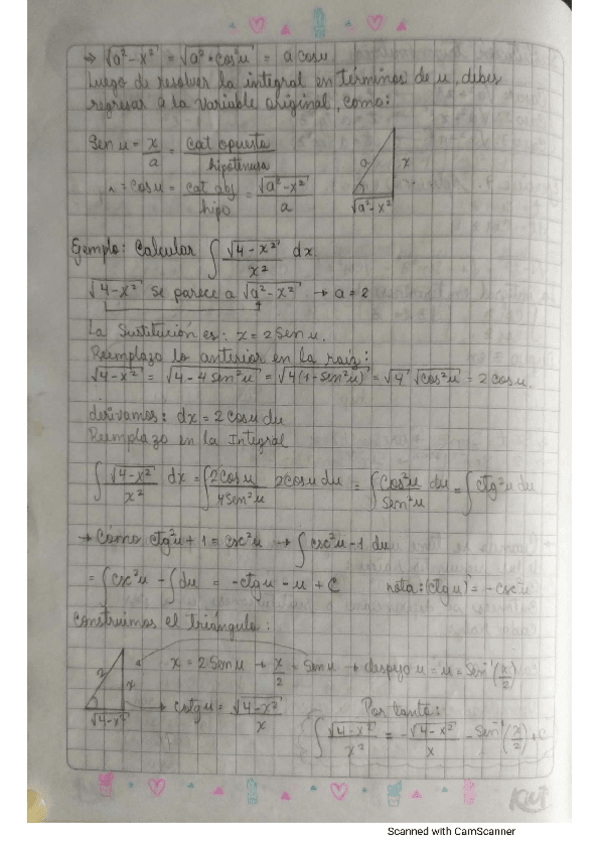 → √a²-x² = √a²·cos²u = a cosu
Luego de resolver la integral en términos de u, debes
regresar a la variable original, como:
Sen u = x/a = cat opuesto/hipotenusa
a
x
√a²-x²
∧ = cosu = cat ady/hipo = √a²-x²/a
Ejemplo: Calcular ∫ √4-x²/x² dx
√4-x² se parece a √a²-x² → a = 2
La sustitución es: x = 2 Sen u.
Reemplazo lo anterior en la raiz:
√4-x² = √4-4sen²u = √4(1-sen²u) = √4 √cos²u = 2 cosu.
derivamos: dx = 2 cosu du
Reemplazo en la Integral
∫ √4-x²/x² dx = ∫ 2cosu/4sen²u 2cosu du = ∫ cos²u/sen²u du = ∫ ctg²u du
→ Como ctg²u + 1 = csc²u → ∫ csc²u - 1 du
= ∫ csc²u - ∫ du = -ctgu - u + C nota: (ctg u)' = -csc²u
Construimos el triángulo:
2
x
√4-x²
x = 2 Sen u → x/2 = Sen u → despejo u = u = Sen⁻¹(x/2)
→ cotgu = √4-x²/x
Por tanto:
∫ √4-x²/x² = -√4-x²/x - Sen⁻¹(x/2) + C
Kiut
Scanned with CamScanner